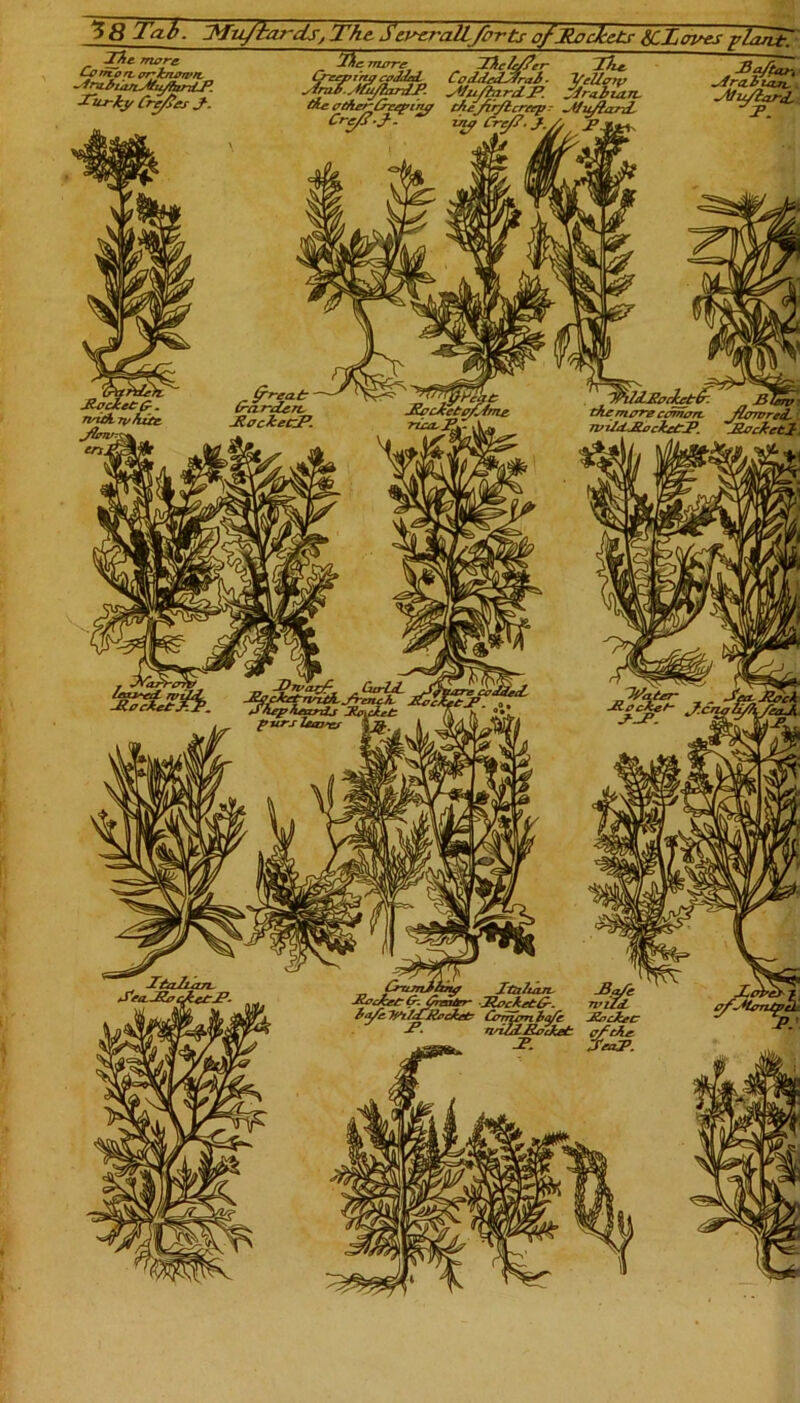 38 Tab. Muſtards, The Severall ſorts of Rockets & Loves plant.
The more
Comon or known
Arabian Muſtard P.
Turky Creſſes J.
The more
Creeping codded
Arab. Muſtard P.
the other Creeping
Creſſ. J.
The leſſer
Codded Arab.
Muſtard P.
the firſt creep-
ing Creſſ. J.
The
Yellow
Arabian
Muſtard
P.
Baſtar
Arabian
Muſtard
P
Garden
Rocket G.
with white
flow
ers
Great
Garden
Rocket P.
Great
Rocket of Ame
rica P.
Wild Rocket G.
the more comon
wild Rocket P.
Blew
flowred
Rocket J
Narrow
leaved wild
Rocket J. P.
Dwarf
Rocket with
Shepheards
purs leaves
Curld
french
Rocket
P.
Square codded
Rocket P.
Water
Rocket
J. P.
Sea Rock
J. Engliſh ſea R
P.
Italian
Sea Rocket P.
Crumbling
Rocket G. Greater
baſe Wild Rocket
P.
Italian
Rocket G.
Common baſe
wild Rocket
P.
Baſe
wild
Rocket
of the
Sea P.
Loves
of Montpel
P.